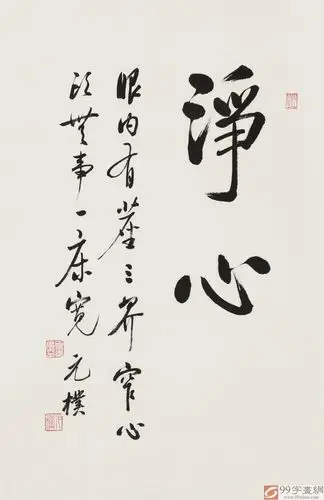 淨心
眼内有塵三界窄心
頭無事一床寬元樸
99字畫網